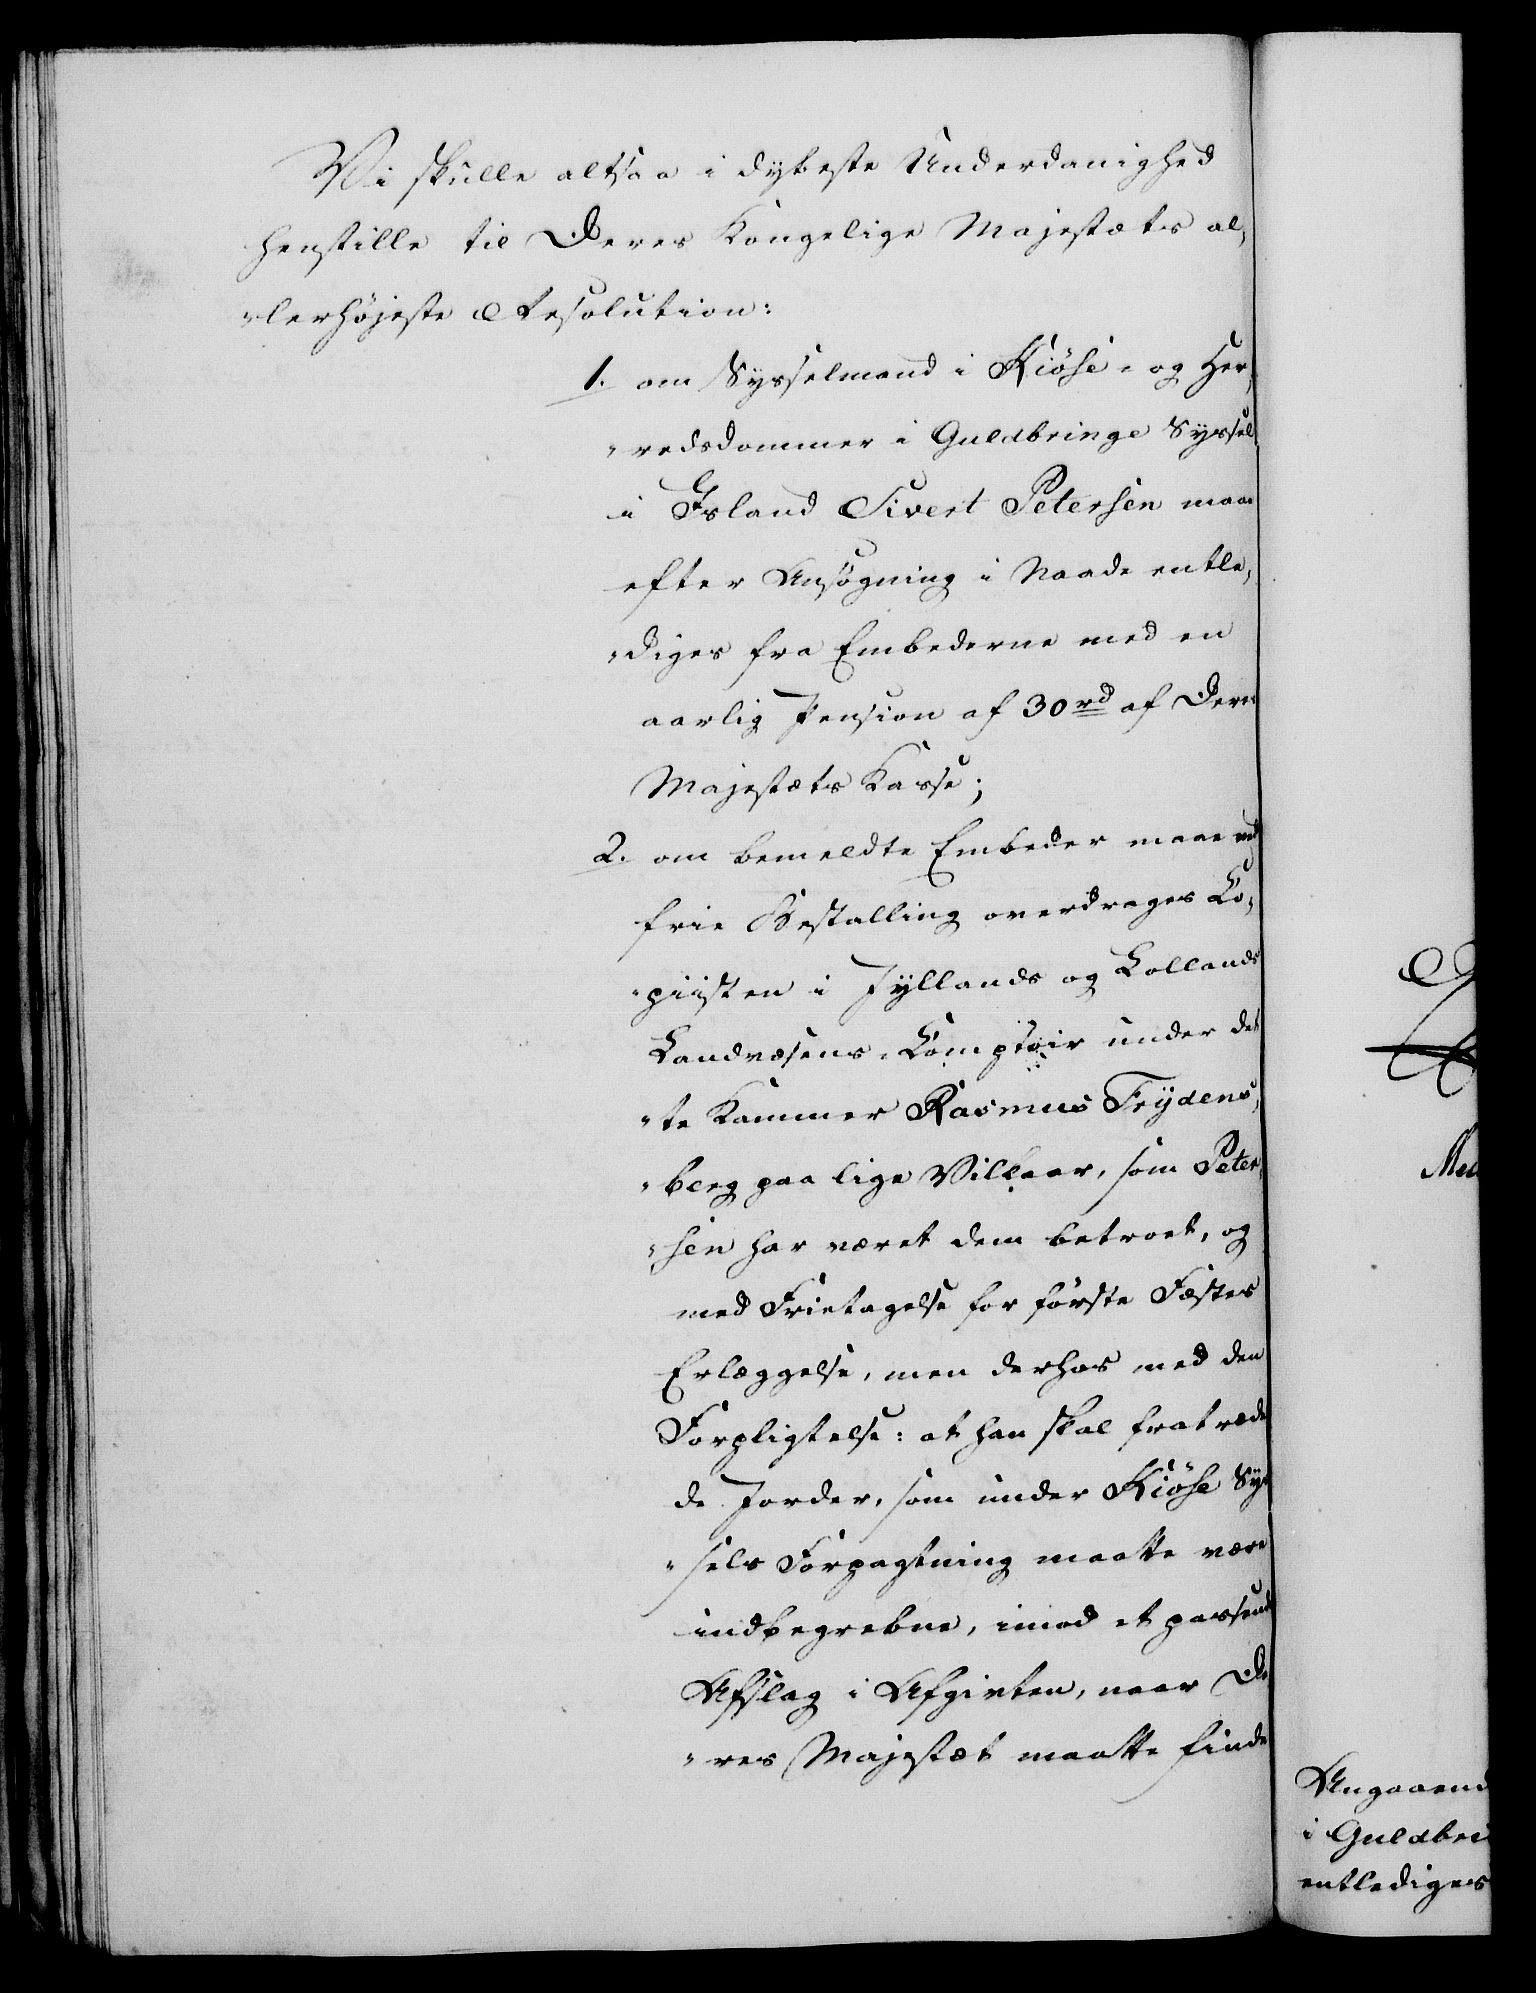 Vi skulle altsaa i dybeste Underdanighed
henstille til Deres Kongelige Majestæts al,
„lerhöjeste Resolution:
1. om Sysselmand i Kiöse- og Her,
„redsdommer i Guldbringe Syssel
i Island Sivert Petersen maa
efter Ansögning i Naade entle,
„diges fra Embederne med en
aarlig Pension af 30 rd af Deres
Majestæts Kasse;
2. om bemeldte Embeder maae ved
frie Bestalling overdrages Co,
„piisten i Jyllands og Lollands
Landvæsens-Comptoir under det,
„te Kammer Rasmus Frydens,
„berg paa lige Vilkaar, som Peter,
„sen har været dem betroet, og
med Frietagelse for förste Fæstes
Erlæggelse, men derhos med den
Forpligtelse: at han skal fratræde
de Jorder, som under Kiöse Sys
„sels Forpagtning maatte være
indbegrebne, imod et passende
Afslag i Afgivten, naar De
„res Majestæt maatte finde
Angaaend
i Guldbri
entlediges